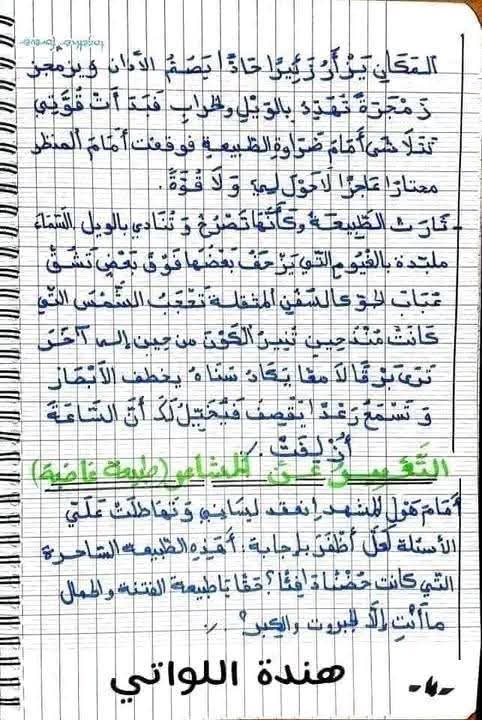 المكان يزأر زئيرا حادّا يصمّ الآذان ويزمجر
زمجرة تهدّد بالويل والخراب فبدأت قوّتي
تتلاشى أمام ضراوة الطّبيعة فوقفت أمام المنظر
محتارا عاجزا لا حول لي و لا قوّة.
- ثارت الطّبيعة وكأنّها تصرخ و تنادي بالويل السّماء
ملبّدة بالغيوم الّتي يزحف بعضها فوق بعض تشقّ
عباب الجوّ كالسّفن المثقلة تحجب الشّمس الّتي
كانت منذ حين تنير الكون من حين إلى آخر
ترى برقا لامعا يكاد سناه يخطف الأبصار
و تسمع رعدا يقصف فيخيّل لك أنّ السّاعة
أزلفت.
التّعبير عن المشاعر (طبيعة غاضبة)
أمام هول المشهد إنعقد لساني و تهاطلت عليّ
الأسئلة لعلّي أظفر بإجابة: أهذه الطّبيعة السّاحرة
الّتي كانت حضنا دافئا؟ حقّا يا طبيعة الفتنة والجمال
ما أنت إلّا الجبروت والكبر؟
هندة اللواتي